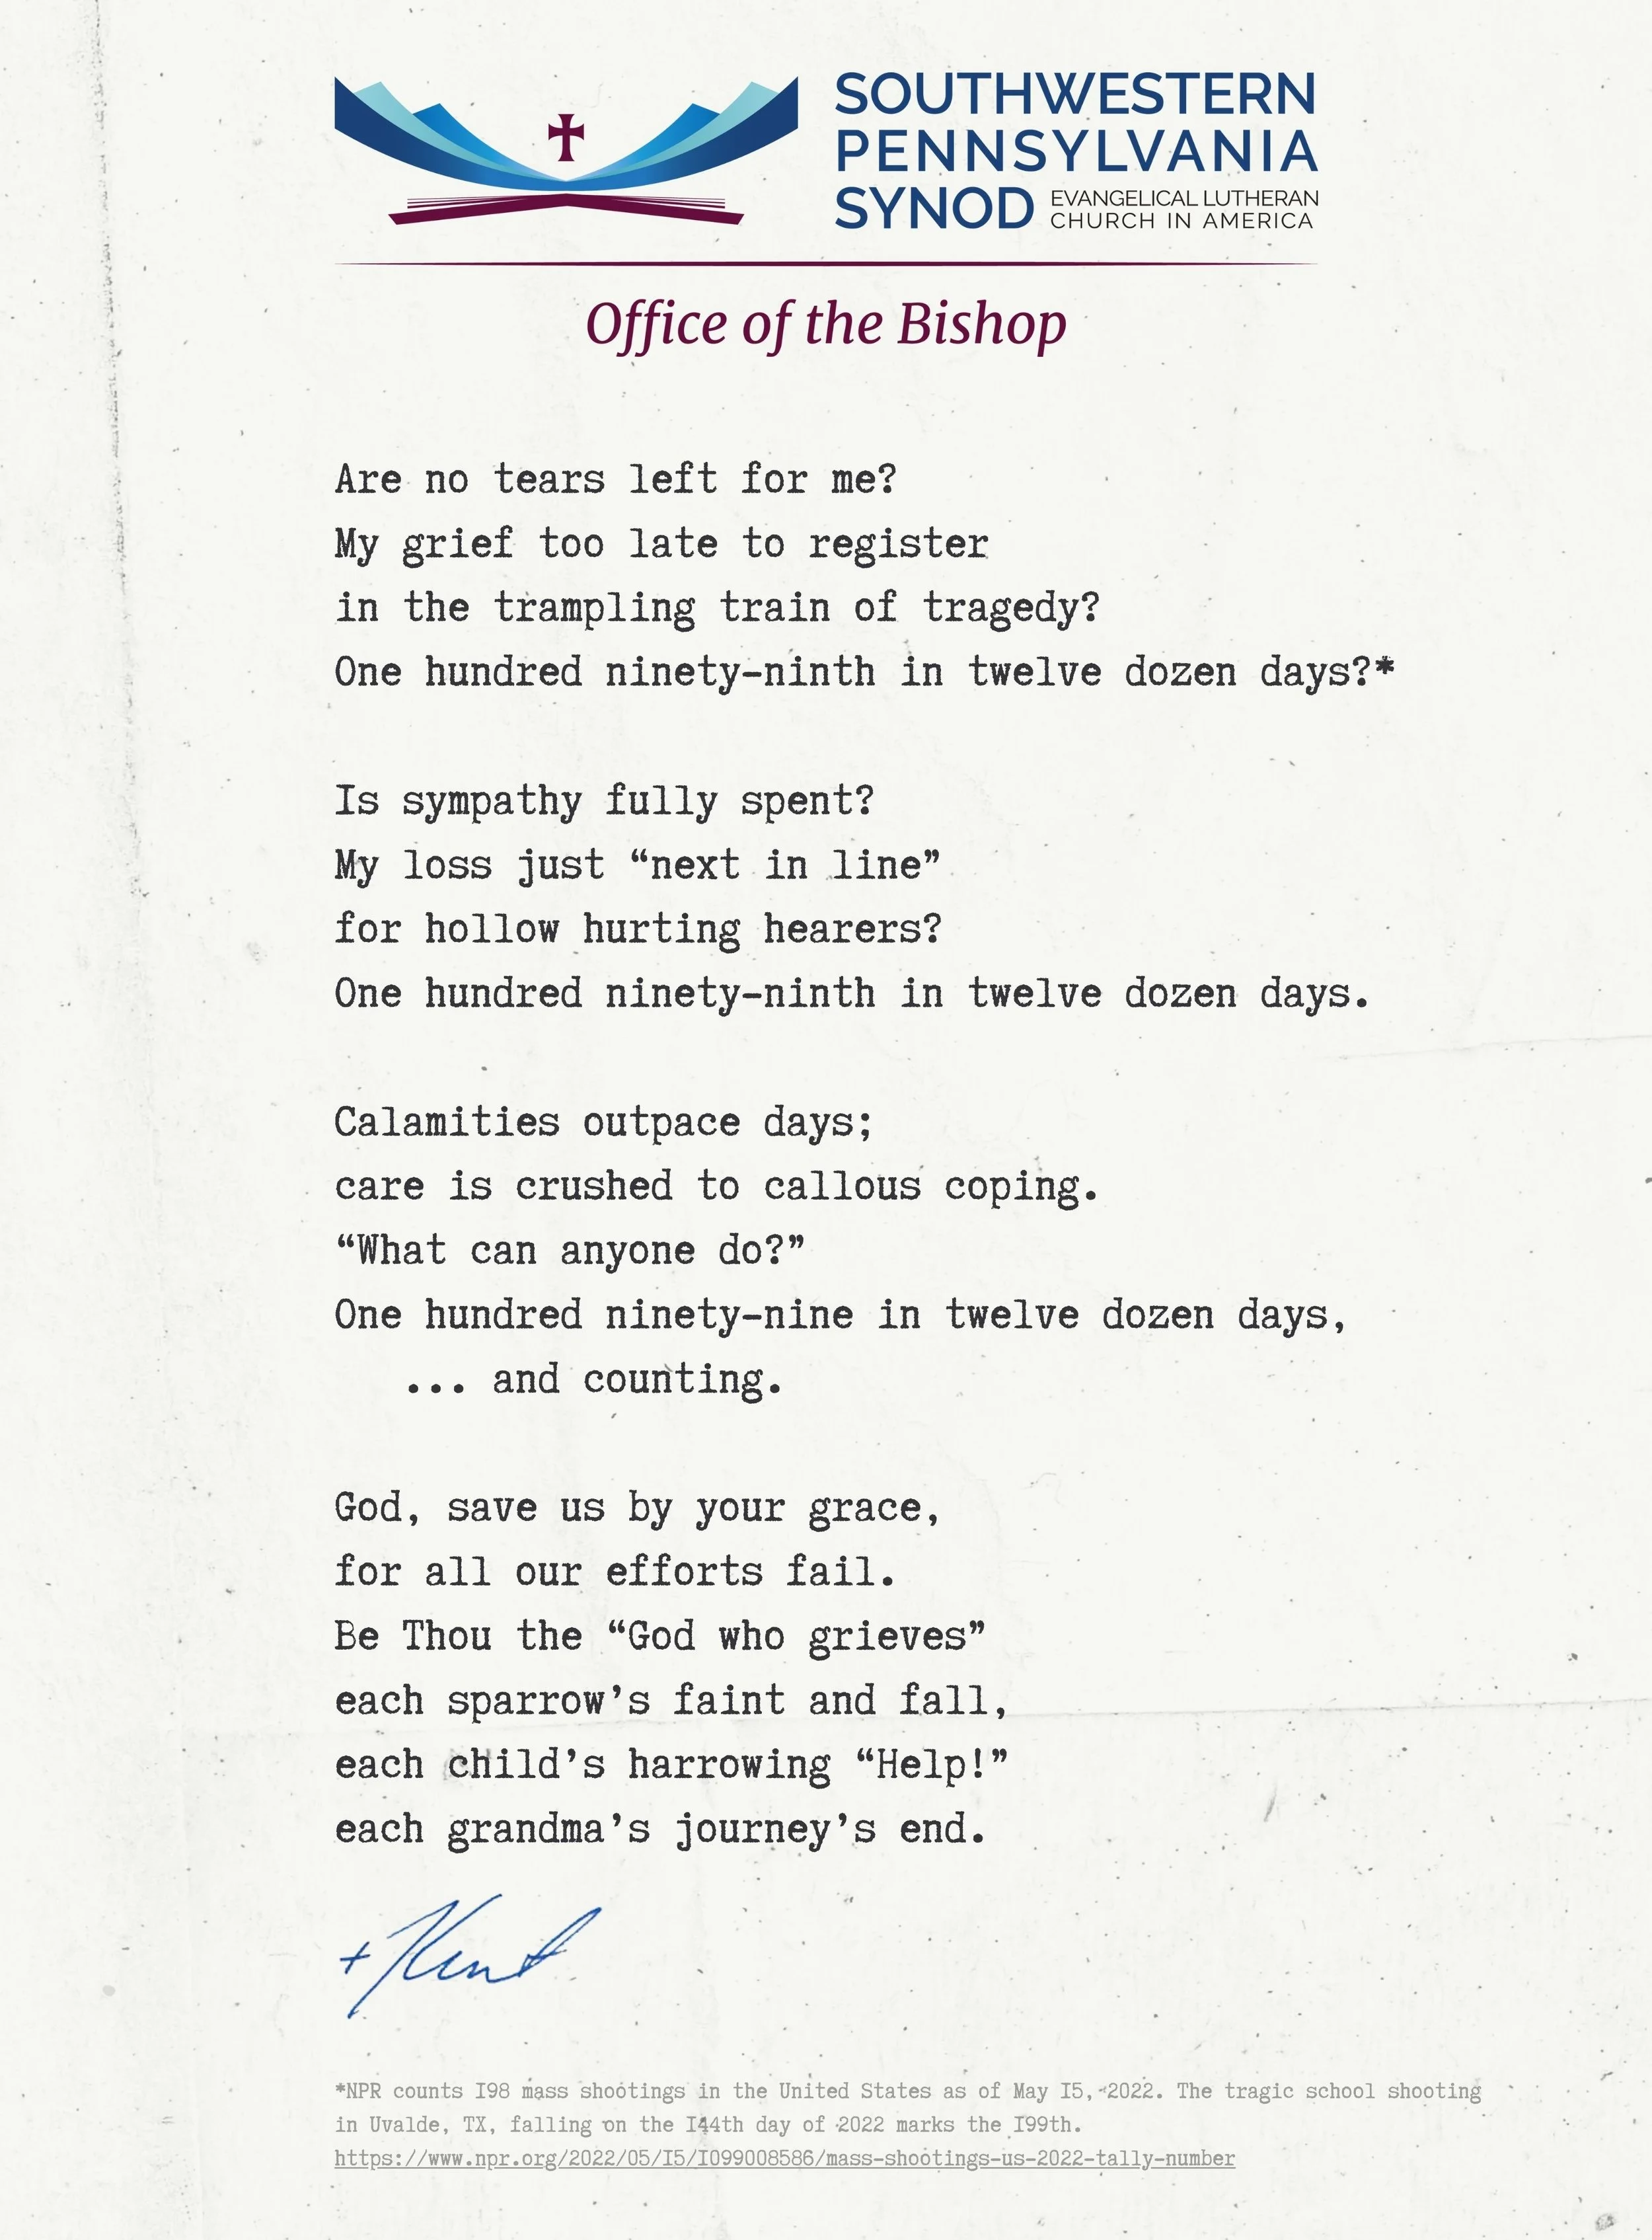 SOUTHWESTERN
PENNSYLVANIA
SYNOD EVANGELICAL LUTHERAN
CHURCH IN AMERICA
Office of the Bishop
Are no tears left for me?
My grief too late to register
in the trampling train of tragedy?
One hundred ninety-ninth in twelve dozen days?*
Is sympathy fully spent?
My loss just “next in line”
for hollow hurting hearers?
One hundred ninety-ninth in twelve dozen days.
Calamities outpace days;
care is crushed to callous coping.
“What can anyone do?”
One hundred ninety-nine in twelve dozen days,
... and counting.
God, save us by your grace,
for all our efforts fail.
Be Thou the “God who grieves”
each sparrow’s faint and fall,
each child’s harrowing “Help!”
each grandma’s journey’s end.
+Kurt
*NPR counts 198 mass shootings in the United States as of May 15, 2022. The tragic school shooting
in Uvalde, TX, falling on the 144th day of 2022 marks the 199th.
https://www.npr.org/2022/05/15/1099008586/mass-shootings-us-2022-tally-number